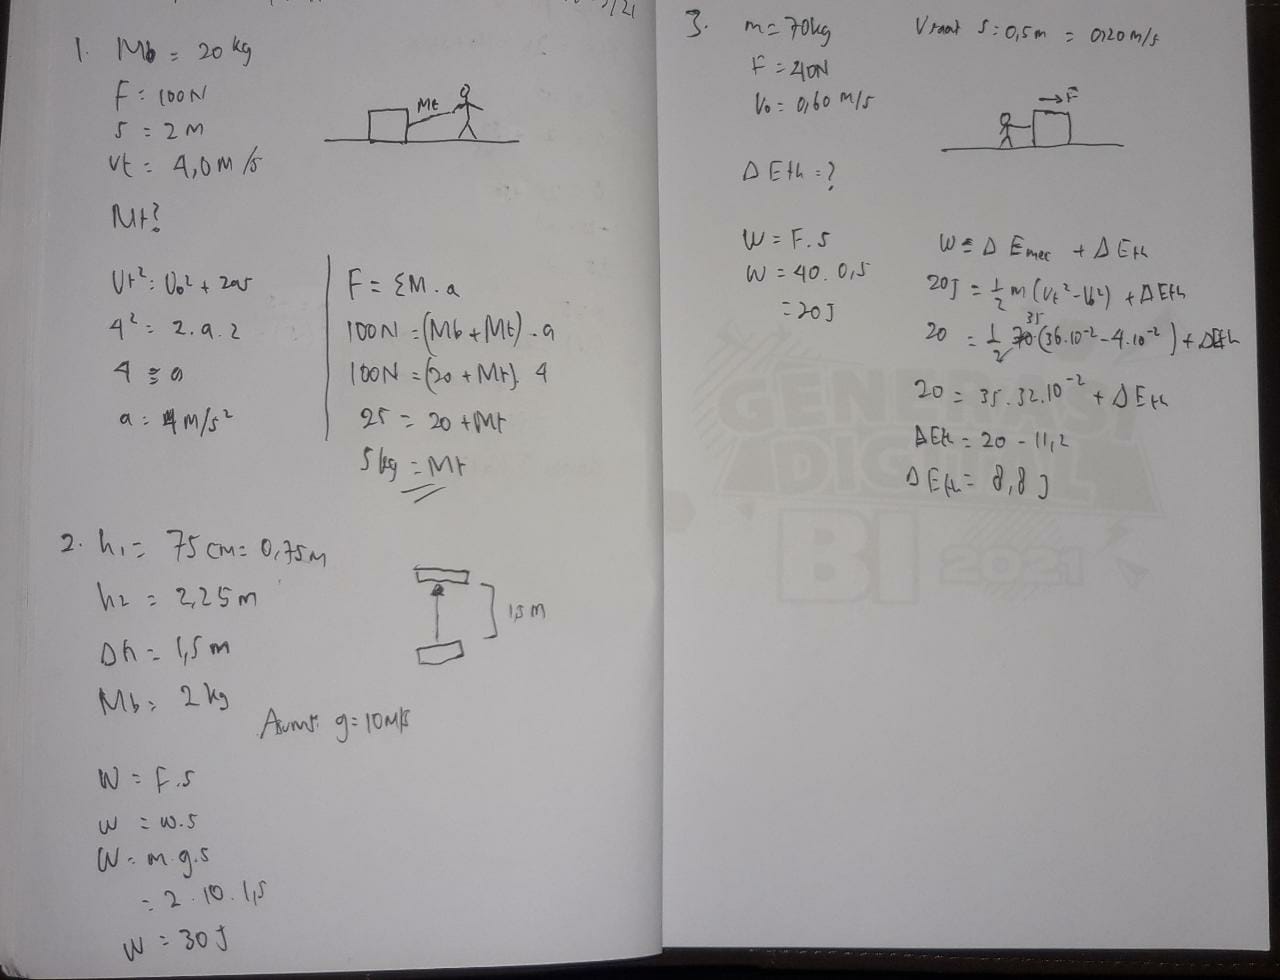 1. Mb = 20 kg
F = 100N
s = 2 M
Vt = 4,0 m/s
Mt
Mt?
Vt² = Vo² + 2as
4² = 2.a.2
4 = a
a = 4 m/s²
F = ΣM.a
100N = (Mb + Mt).a
100N = (20 + Mt). 4
25 = 20 + Mt
5 kg = Mt
2. h₁ = 75 cm = 0,75m
h₂ = 2,25m
Δh = 1,5 m
Mb = 2 kg
1,5 m
Asumsi g = 10 M/s
W = F.s
W = w.s
W = m.g.s
= 2.10.1,5
W = 30 J
3. m = 70kg
F = 40N
Vo = 0,60 m/s
V saat s = 0,5m = 0,20 m/s
F
Δ Eth = ?
W = F.s
W = 40. 0,5
= 20 J
W = Δ Emec + Δ Eth
20J = 1/2 m (Vt² - Vo²) + ΔEth
20 = 1/2 70 35 (36.10⁻² - 4.10⁻²) + ΔEth
20 = 35.32.10⁻² + ΔEth
ΔEth = 20 - 11,2
ΔEth = 8,8 J
GENERASI
DIGITAL
BI 2021